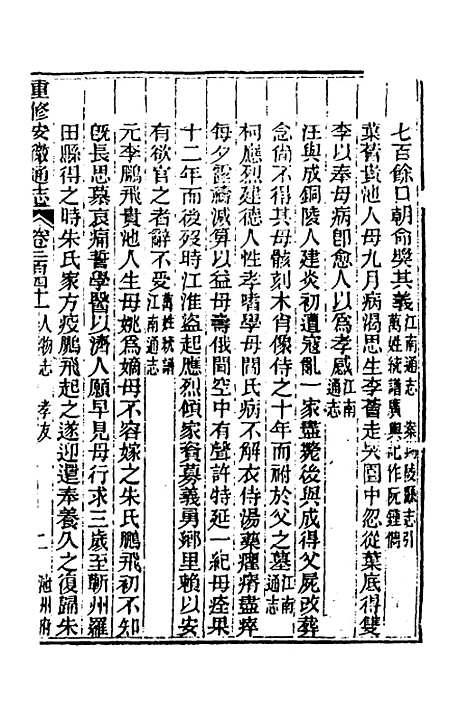 七百餘口朝命獎其義江南通志 案銅陵縣志引
萬姓統譜廣輿記作阮鍾儔
葉蒈貴池人母九月病渴思生李蒈走哭園中忽從葉底得雙
李以奉母病卽愈人以爲孝感江南通志
汪與成銅陵人建炎初遭寇亂一家盡斃後與成得父屍改葬
念尙不得其母骸刻木肖像侍之十年而祔於父之墓江南通志
柯應烈建德人性孝嗜學母閻氏病不解衣侍湯藥痙瘠盡瘁
每夕露禱減算以益母壽俄聞空中有聲許特延一紀母痊果
十二年而後歿時江淮盜起應烈傾家貲募義勇鄉里賴以安
有欲官之者辭不受萬姓統譜 江南通志
元李鵬飛貴池人生母姚爲嫡母不容嫁之朱氏鵬飛初不知
旣長思慕哀痛誓學醫以濟人願早見母行求三歲至蘄州羅
田縣得之時朱氏家方疫鵬飛起之遂迎還奉養久之復歸朱
重修安徽通志 卷二百四十一 人物志 孝友 二 池州府